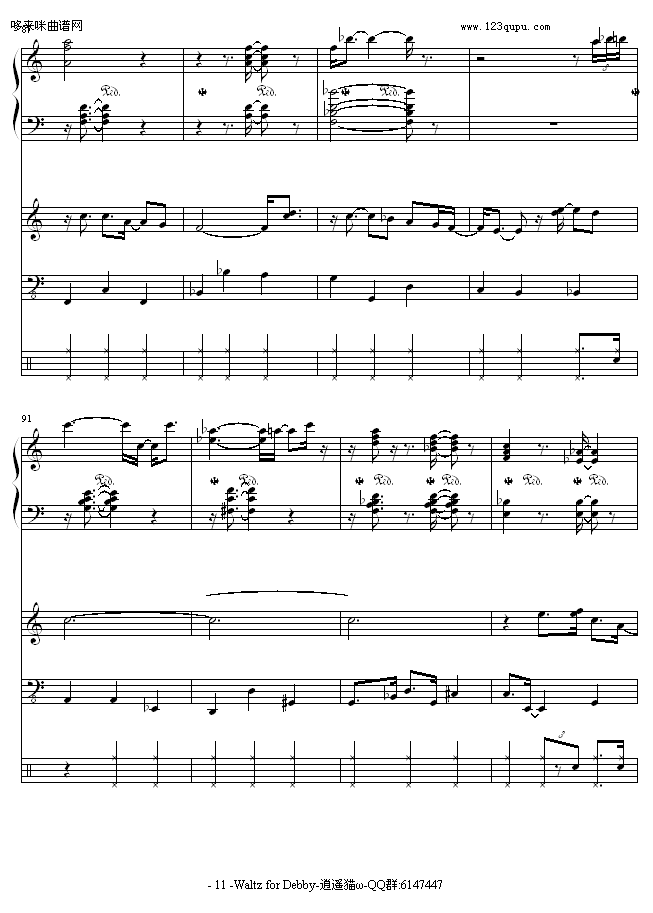 哆来咪曲谱网
www.123qupu.com
87
3
Ped. Ped. Ped. Ped.
8
91
Ped. Ped. Ped. Ped. Ped. Ped.
8
3
- 11 -Waltz for Debby-逍遥猫ω-QQ群:6147447